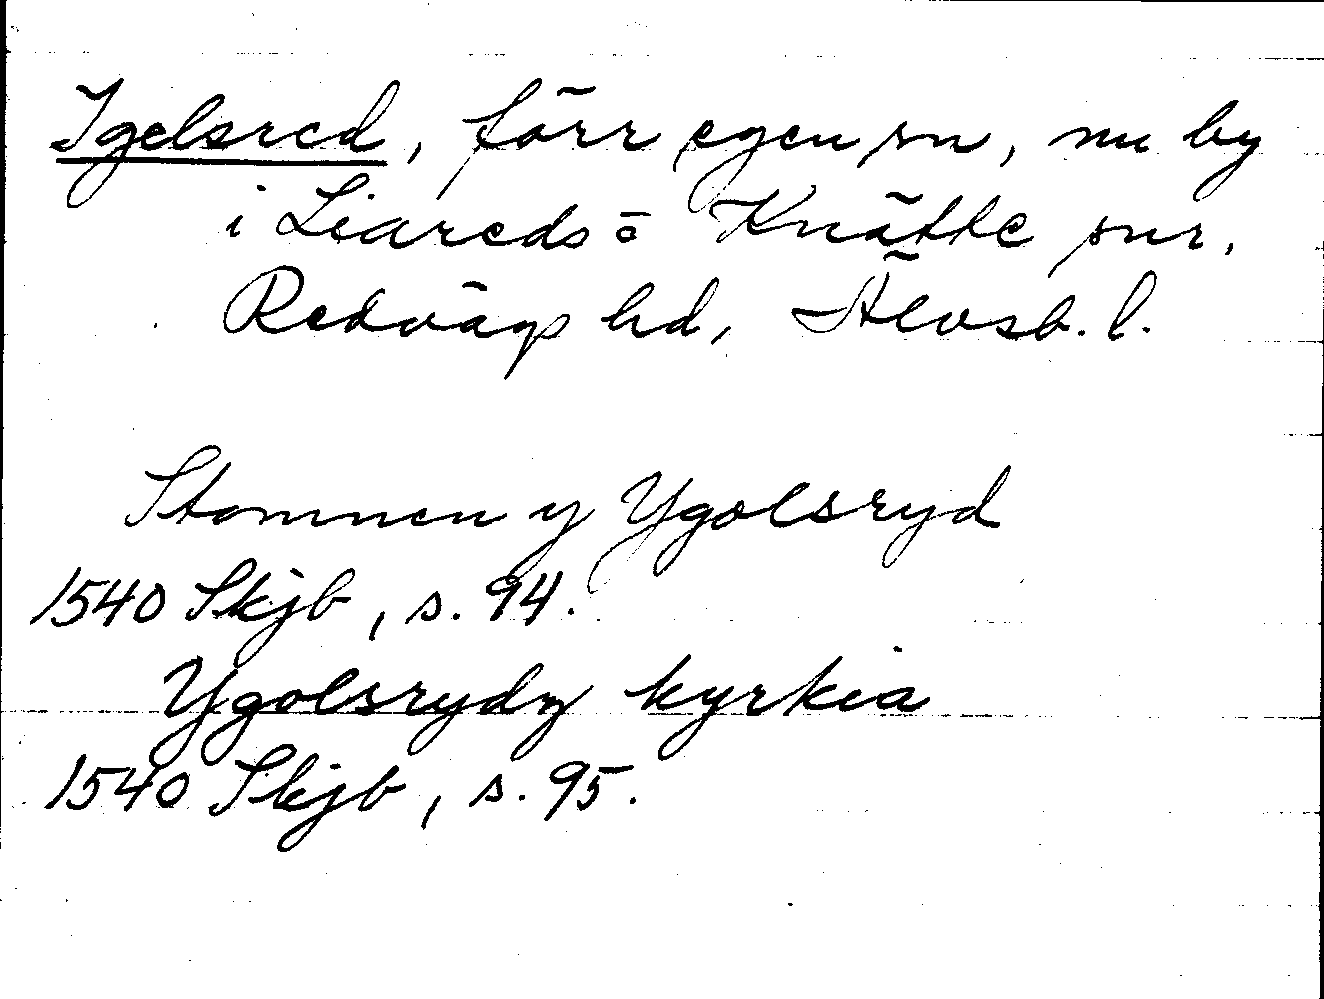 Igelsred, förr egen sn, nu by
i Liareds o Knätte snr.
Redvägs hd, Älvsb. l.
Stommen y Ygolsryd
1540 Skjb, s. 94.
Ygolsrydz kyrkia
1540 Skjb, s. 95.